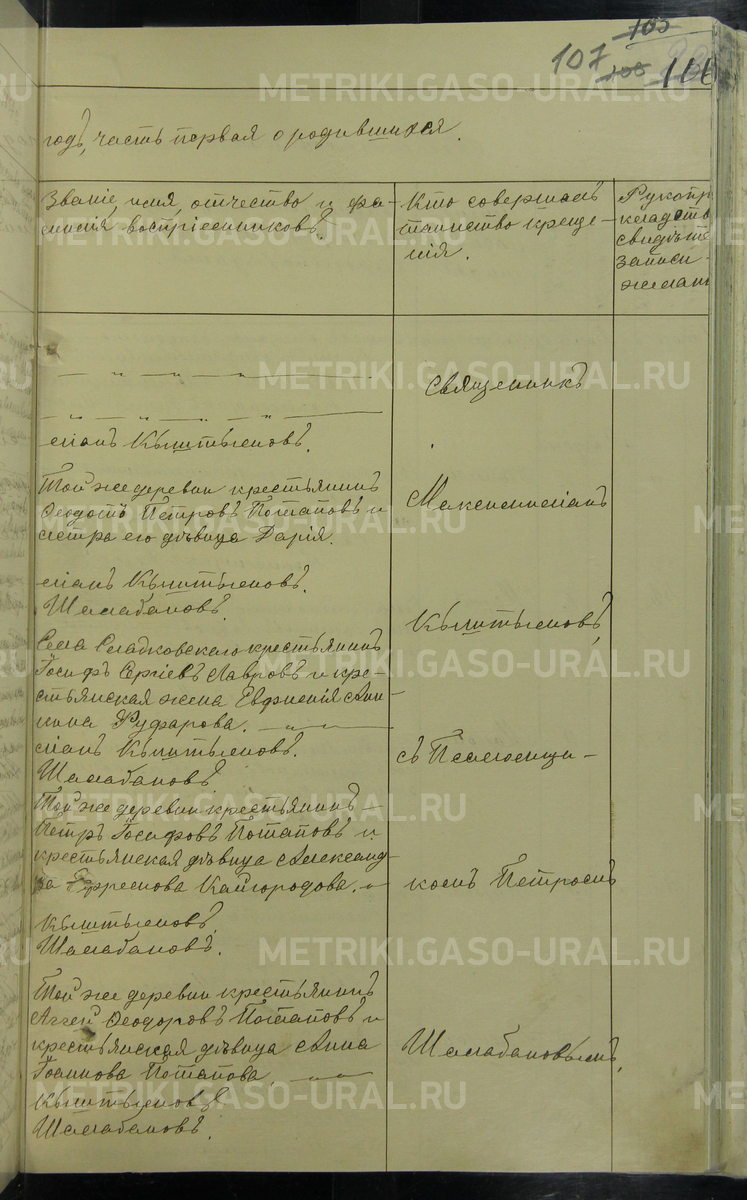 105
107 105 106
годъ, часть первая о родившихся.
Званіе, имя, отчество и фа-
милія воспріемниковъ.
Кто совершалъ
таинство креще-
нія.
Рукопр
свидѣт
записи
желан
Священникъ
міанъ Кыштымовъ.
Той же деревни крестьянинъ
Ѳеодотъ Петровъ Потаповъ и
сестра его дѣвица Дарія.
Максимиліанъ
міанъ Кыштымовъ.
Шалабановъ.
Кыштымовъ,
Села Сладковскаго крестьянинъ
Іосифъ Сергіевъ Лавровъ и кре-
стьянская жена Евфимія Ани-
кина Руфарова.
міанъ Кыштымовъ.
Шалабановъ
съ Псаломщи-
Той же деревни крестьянинъ
Петръ Іосифовъ Потаповъ и
крестьянская дѣвица Александ-
ра Кайгородова.
комъ Петромъ
Кыштымовъ,
Шалабановъ.
Той же деревни крестьянинъ
Аггей Ѳеодоровъ Потаповъ и
крестьянская дѣвица Анна
Іоаннова Потапова.
Шалабановымъ,
Кыштымовъ
Шалабановъ.
METRIKI.GASO-URAL.RU